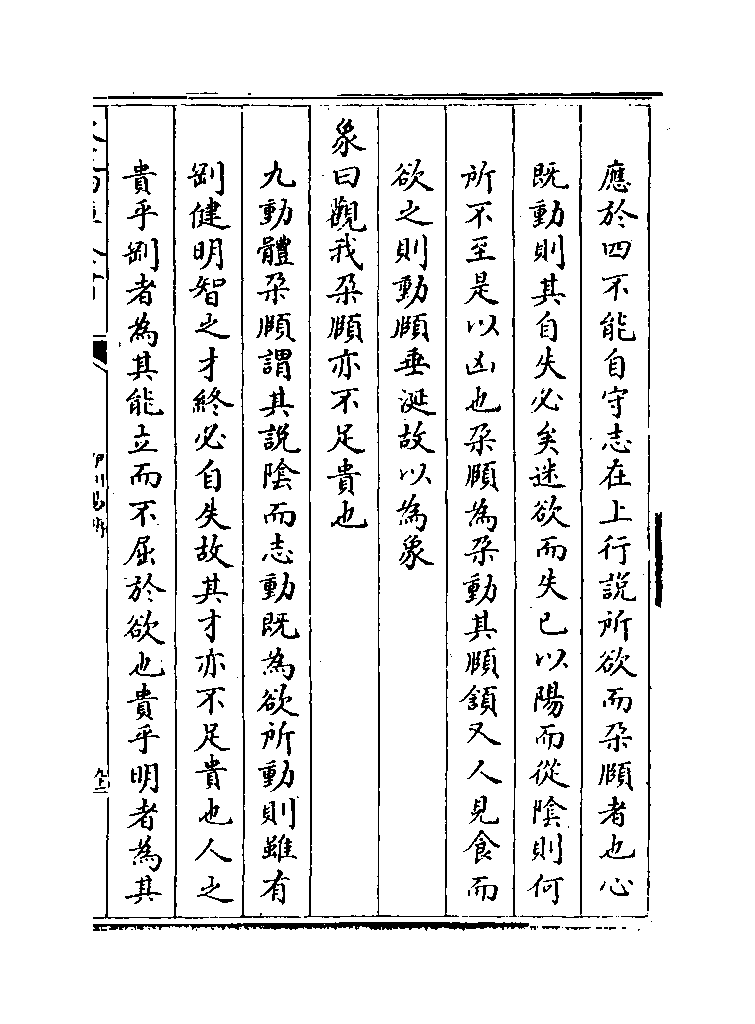 應於四不能自守志在上行說所欲而朶頤者也心
既動則其自失必矣迷欲而失已以陽而從陰則何
所不至是以凶也朶頤為朶動其頤頷又人見食而
欲之則動頤垂涎故以為象
象曰觀我朶頤亦不足貴也
九動體朶頤謂其說陰而志動既為欲所動則雖有
剛健明智之才終必自失故其才亦不足貴也人之
貴乎剛者為其能立而不屈於欲也貴乎明者為其
伊川易傳